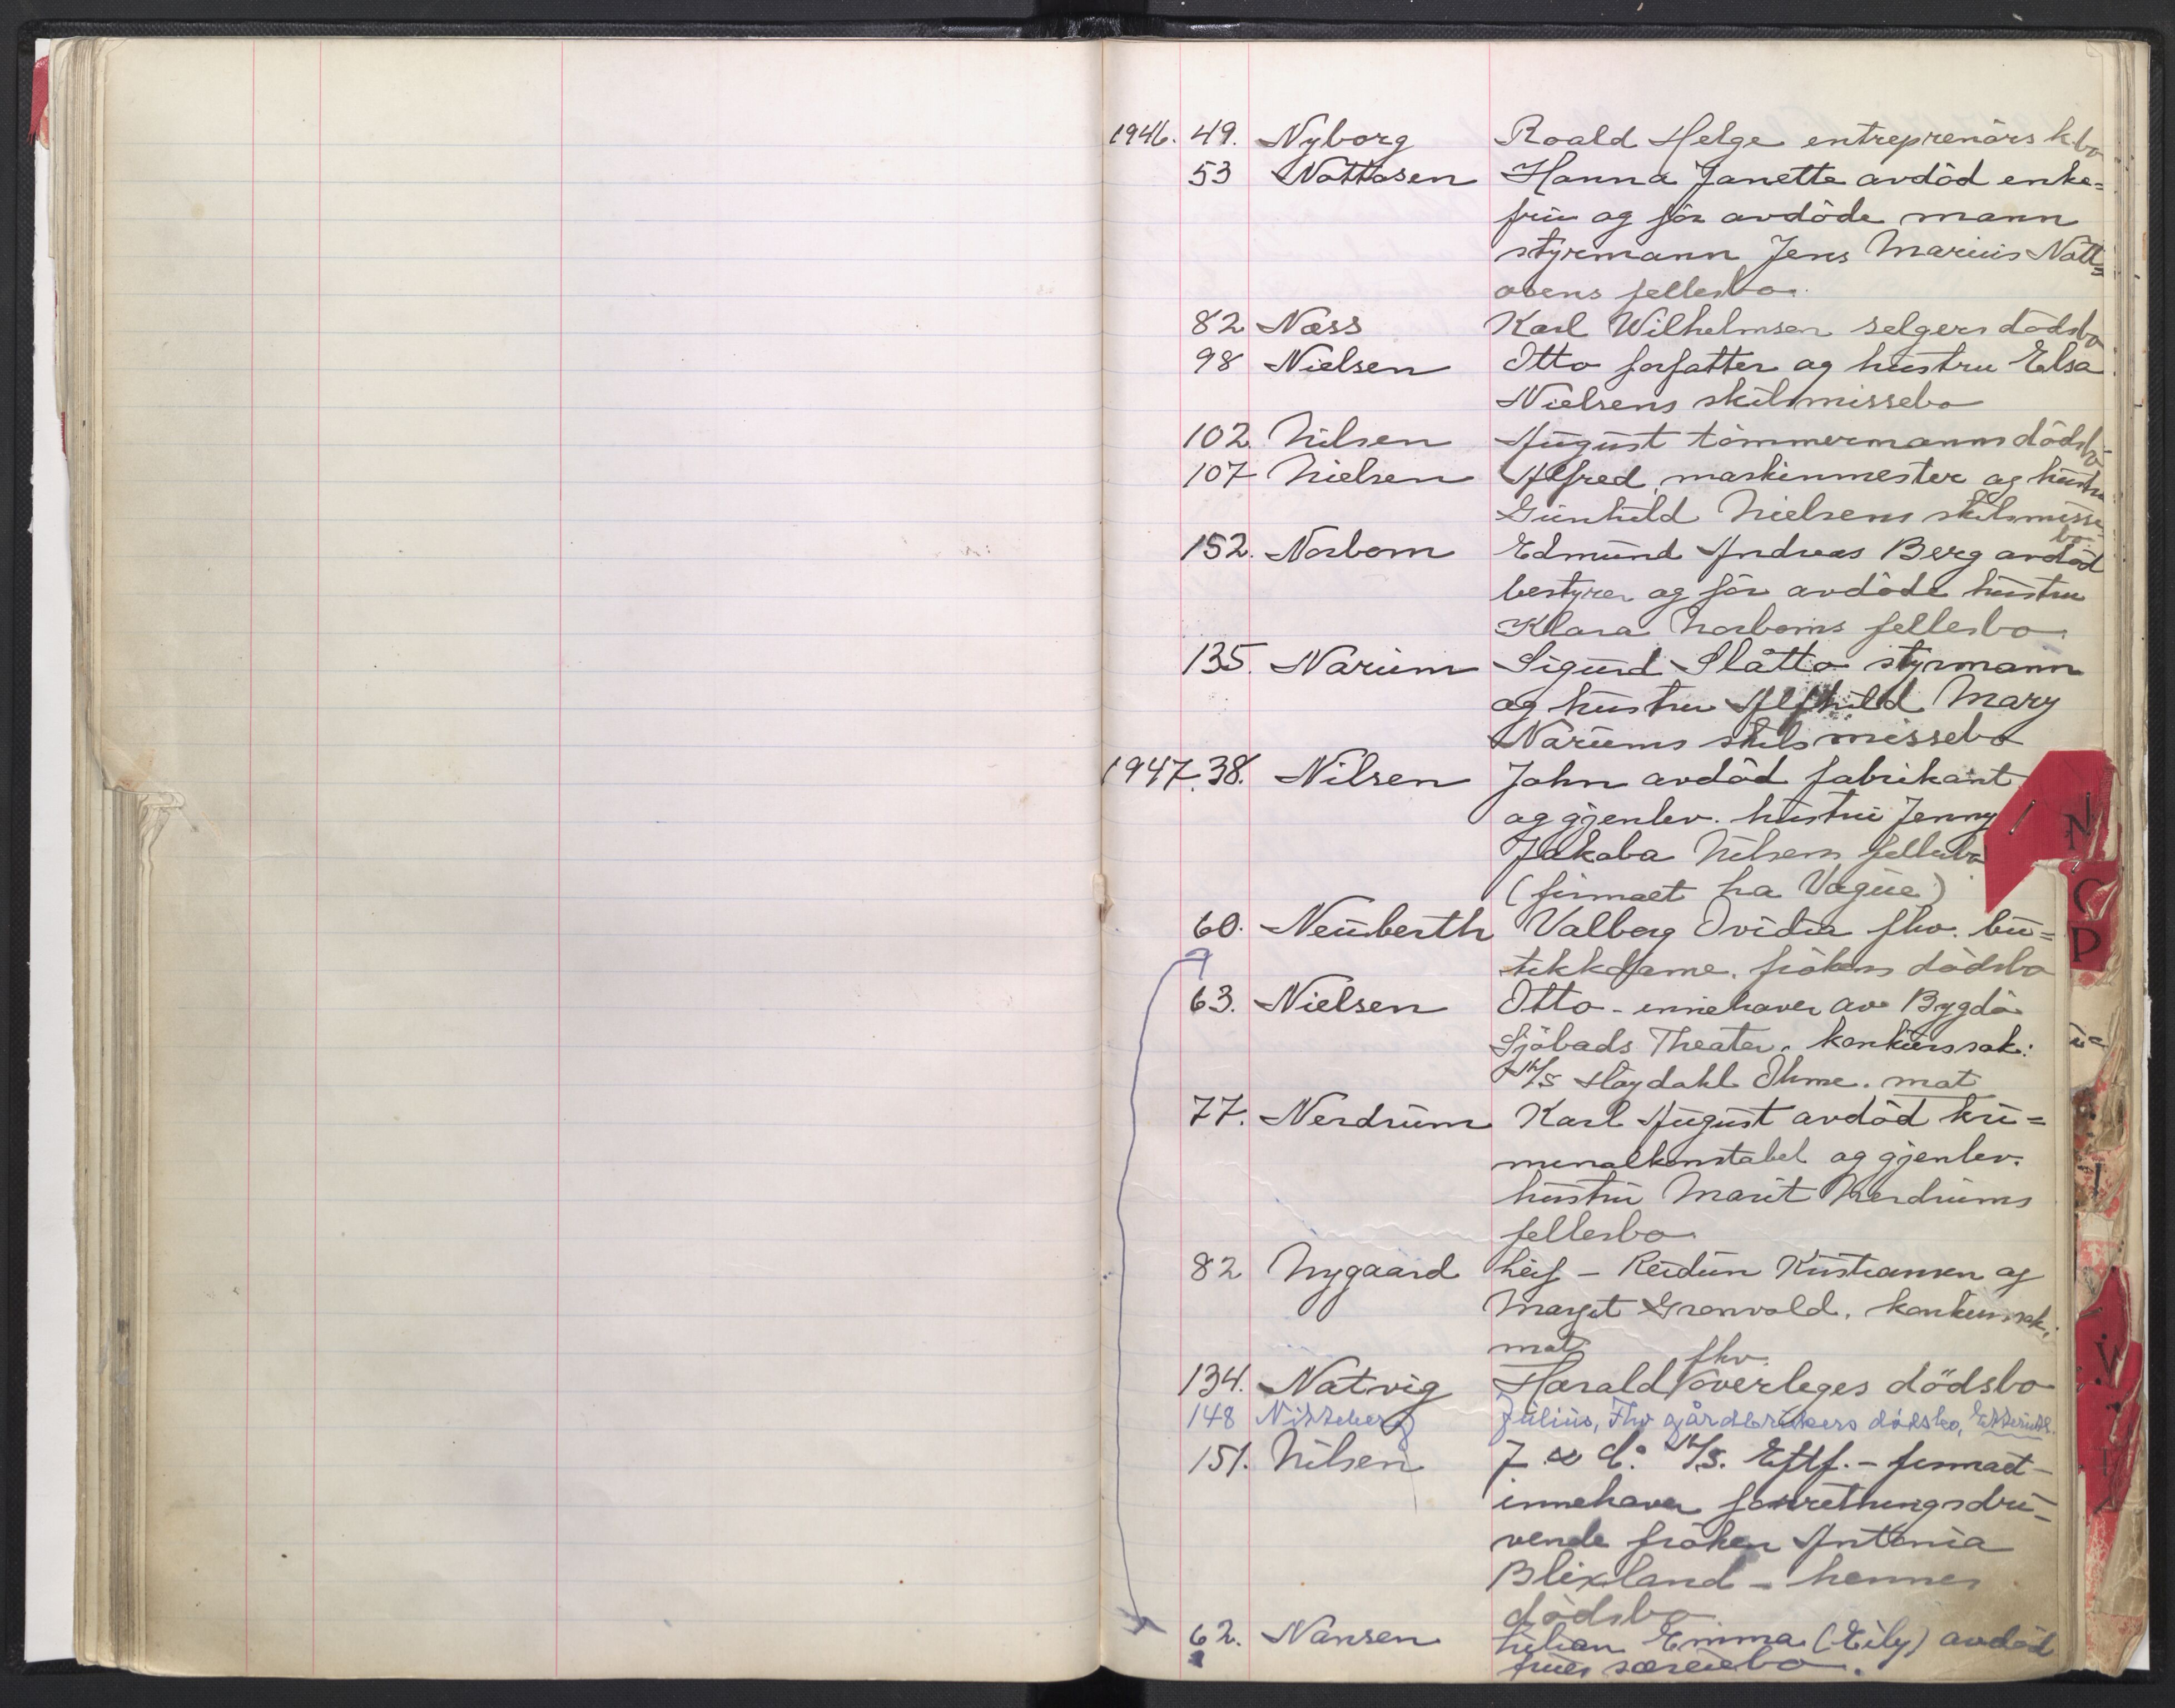 1946. 49. Nyborg Roald Helge entreprenörs k.bo
53 Nottosen Hanna Janette avdöd enke=
frü og för avdöde mann
styrmann Jens Mariüs Nott=
osens fellesbo.
82 Næss Karl Wilhelmsen selgers dödsbo
98 Nielsen Otto forfatter og hüstru Elsa
Nielsens skilsmissebo
102. Nilsen Aügüst tömmermanns dödsbo
107 Nielsen Alfred maskinmester og hüstru
Günhild Nielsens skilsmisse-
bo
152. Norbom Edmünd Andreas Berg avdöd
bestyrer og för avdöde hüstru
Klara Norboms fellesbo.
135. Narüm Sigürd Slåtto styrmann
og hüstru Alfhild Mary
Narüms skilsmissebo
1947. 38. Nilsen John avdöd fabrikant
og gjenlev. hüstrü Jenny
Jakoba Nilsens fellesbo
(firmaet fra Vogüe)
60. Neüberth Valborg Ovidia fhv. bü=
tikkdame, frökens dödsbo
63. Nielsen Otto - innehaver av Bygdö
Sjöbads Theater. konkürssak:
A/S Höydahl Ohme. mat
77. Nerdrüm Karl Aügüst avdöd kri=
minalkonstabel og gjenlev.
hüstrü Marit Nerdrüms
fellesbo
82 Nygaard Leif - Reidün Kristiansen og
Margit Gronvold. konkürssak,
mat
134. Natvig Harald fhv. overleges dödsbo
148 Nitteberg Jülius, Fhv gårdbrükers dödsbo,
151. Nilsen J. & Co A/S. Eftf. - firmaet -
innehaver forretningsdri-
vende fröken Antonia
Blixland - hennes
dödsbo
62. Nansen Lilian Emma (Eily) avdöd
frües særeiebo.
N
O
P